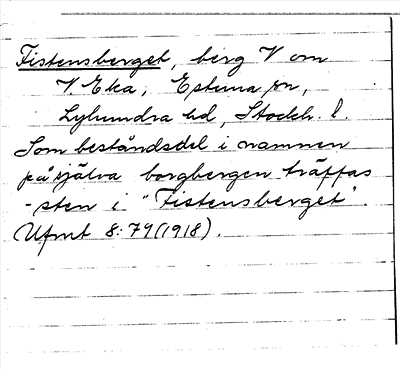 Fistensberget, berg V om
V. Eka, Estuna sn,
Lyhundra hd, Stockh. l.
Som beståndsdel i namnen
på själva borgbergen träffas
-sten i "Fistensberget".
Ufmt 8:79 (1918).